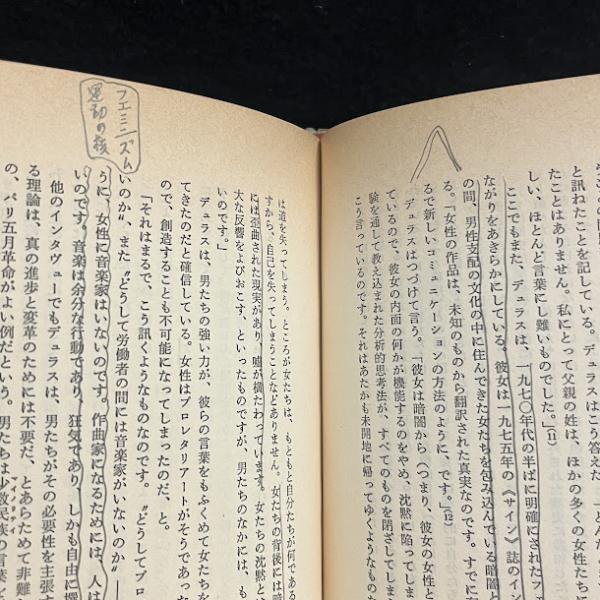 と訊ねたことを記している。デュラスはこう答えた
たことはありません。私にとって父親の姓は、ほかの多くの女性たち
しい、ほとんど言葉にし難いものでした。」(11)
ここでもまた、デュラスは、一九七〇年代の半ばに明確にされたフェ
ながりをあきらかにしている。彼女は一九七五年の《サイン》誌のイン
の間、男性支配の文化の中に住んできた女たちを包み込んでいる暗闇と
る。「女性の作品は、未知のものから翻訳された真実なのです。すでに
るで新しいコミュニケーションの方法のように、です。」(12)
デュラスはつづけて言う。「彼女は暗闇から(つまり、彼女の女性と
ているので、彼女の内面の何かが機能するのをやめ、沈黙に陥ってしま
験を通して教え込まれた分析的思考法が、すべてのものを閉ざしてしま
こう言っているのです。それはあたかも未開地に帰ってゆくようなもの
は道を失ってしまう。ところが女たちは、もともと自分たちが何である
すから、自己を失ってしまうことなどありません。女たちの背後には
には歪曲された現実があり、嘘が横たわっています。女たちの沈黙と
大な反響をよびおこす、といったものですが、男たちのなかには、も
いのです。」
デュラスは、男たちの強い力が、彼らの言葉をもふくめて女たちを
てきたのだと確信している。女性はプロレタリアートがそうであった
ので、創造することも不可能になってしまったのだ、と。
「それはまるで、こう訊くようなものなのです。〝どうしてプロ
いのか〟、また〝どうして労働者の間には音楽家がいないのか〟――
うに、女性に音楽家はいないのです。作曲家になるためには、人は
いのです。音楽は余分な行動であり、狂気であり、しかも自由に
他のインタヴューでもデュラスは、男たちがその必要性を主張す
る理論は、真の進歩と変革のためには不要だ、とあらためて非難
の、パリ五月革命がよい例だという。男たちは少数民族の言葉を
フェミニズム
運動の核